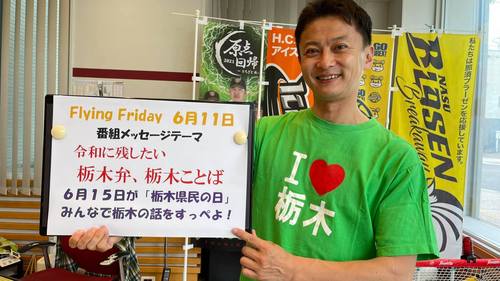 Flying Friday 6月11日
番組メッセージテーマ
令和に残したい
栃木弁、栃木ことば
6月15日が「栃木県民の日」
みんなで栃木の話をすっぺよ!
I ♥
栃木
原点
2021
回帰
H.C.
アイス
私たちは那須ブラーゼンを応援しています。
NASU
BLASEN
Breakaway